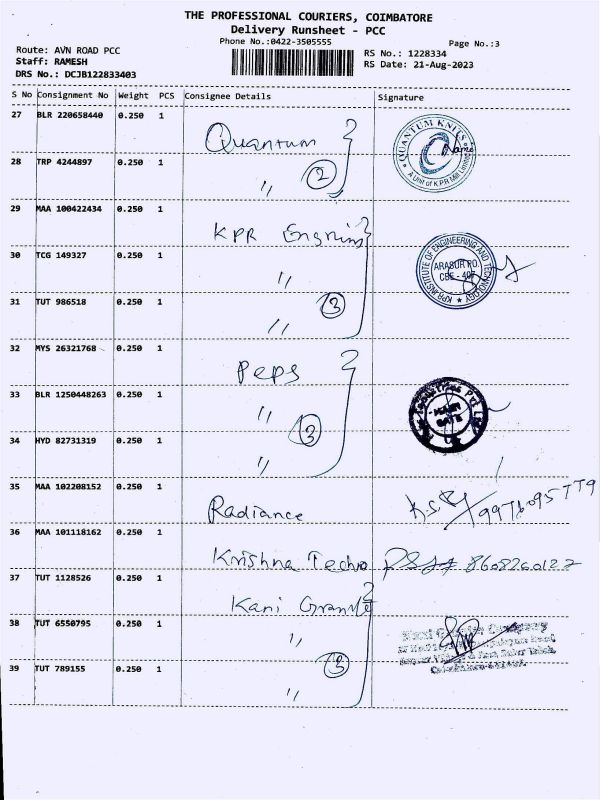 THE PROFESSIONAL COURIERS, COIMBATORE
Delivery Runsheet - PCC
Phone No.:0422-3505555
Page No.:3
Route: AVN ROAD PCC
RS No.: 1228334
Staff: RAMESH
RS Date: 21-Aug-2023
DRS No.: DCJB122833403
S No Consignment No Weight PCS Consignee Details Signature
27 BLR 220658440 0.250 1 Quantum
QUANTUM KNITS
A Unit of K.P.R Mill Limited
28 TRP 4244897 0.250 1 〃 2
29 MAA 100422434 0.250 1 KPR
30 TCG 149327 0.250 1 〃
KPR INSTITUTE OF ENGINEERING AND TECHNOLOGY
ARASUR PO.
CBE - 407
31 TUT 986518 0.250 1 〃 3
32 MYS 26321768 0.250 1 Peps
33 BLR 1250448263 0.250 1 〃 3
MAIN
GATE
34 HYD 82731319 0.250 1 〃
35 MAA 102208152 0.250 1 Radiance
36 MAA 101118162 0.250 1 Krishna Techno 8608260127
37 TUT 1128526 0.250 1 Kani Granite
38 TUT 6550795 0.250 1 〃 3
39 TUT 789155 0.250 1 〃